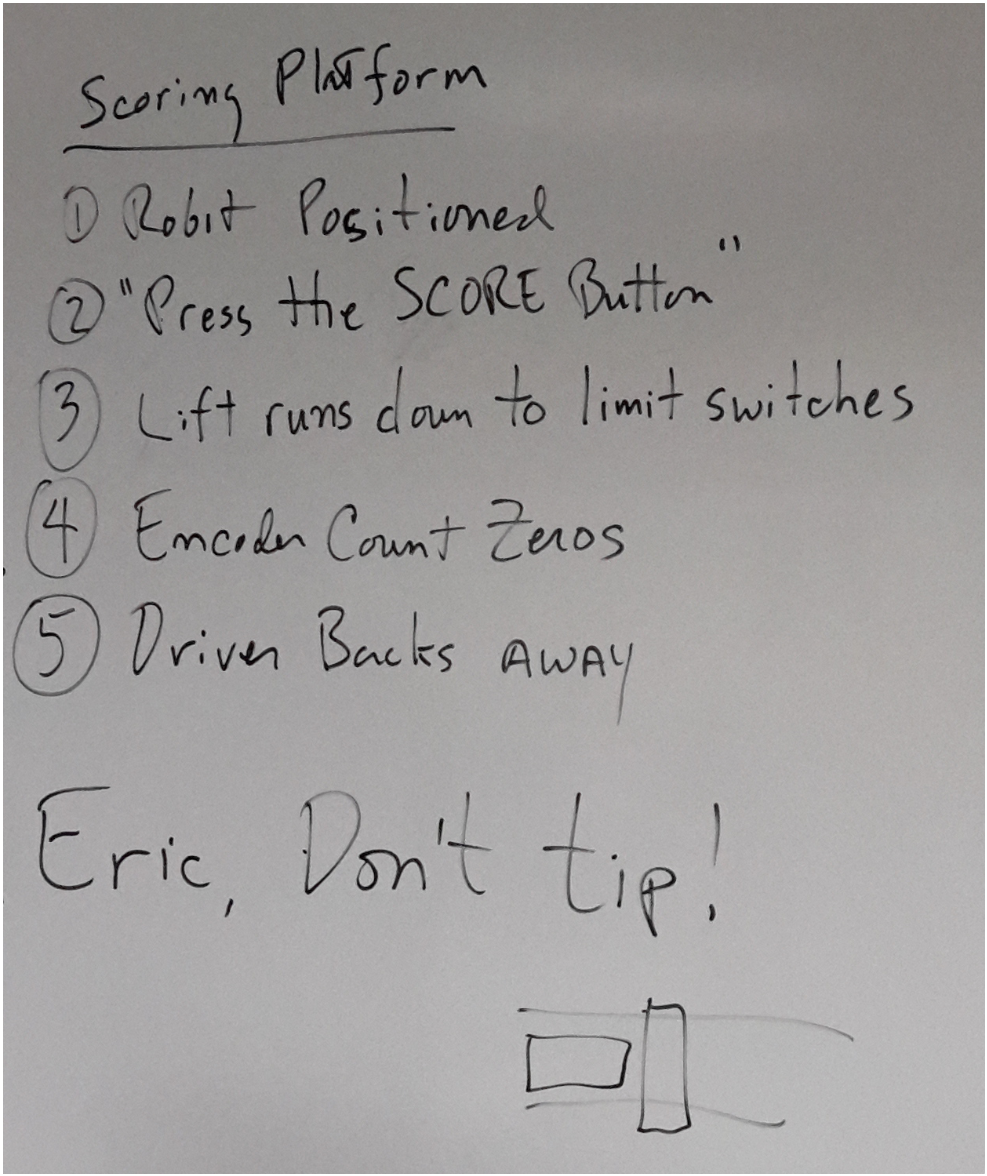 Scoring Platform
① Robit Positioned
② "Press the SCORE Button"
③ Lift runs down to limit switches
④ Encoder Count Zeros
⑤ Driver Backs AWAY
Eric, Don't tip!